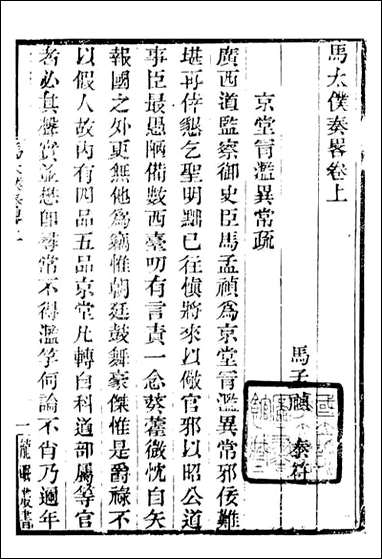 馬太僕奏畧卷上
馬孟禎 泰符
京堂冐濫異常疏
廣西道監察御史臣馬孟禎為京堂冐濫異常邪佞難
堪再倖懇乞聖明黜已往愼將來以儆官邪以昭公道
事臣最愚陋備數西臺叨有言責一念葵藿微忱自矢
報國之外更無他為竊惟朝廷鼓舞豪傑惟是爵祿不
以假人故內有四品五品京堂凡轉自科道部屬等官
者必眞聲實並懋卽尋常不得濫竽何論不肖乃邇年
馬太僕奏畧上
一
龍眠叢書